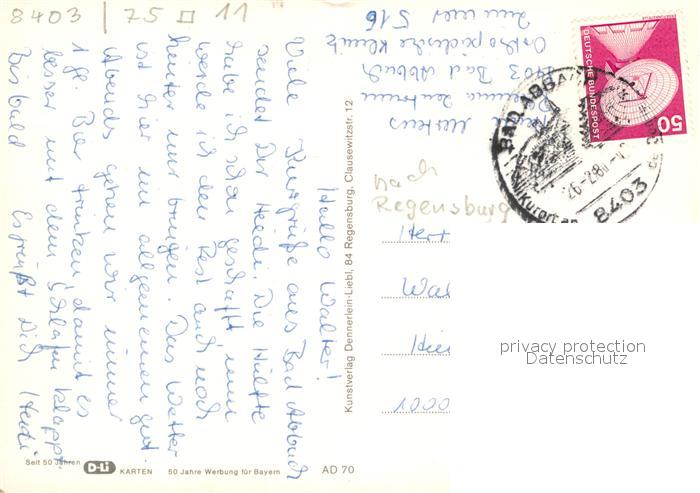 8403 / 75 II 11
Hallo Walter!
Viele Kurgrüße aus Bad Abbach
sendet Dir Heidi. Die Hälfte
habe ich schon geschafft nun
werde ich den Rest auch noch
hinter mir bringen. Das Wetter
ist hier im allgemeinen gut.
Abends gehen wir immer
1 gr. Bier trinken, damit es
besser mit dem Schlafen klappt.
Bis bald Es grüßt Dich Heidi
Mertens
Rheuma Zentrum
8403 Bad Abbach
Orthopädische Klinik
Zimmer 516
nach
Regensburg
DEUTSCHE BUNDESPOST
50
BAD ABBACH
26.2.81
Kurort an
8403
Kunstverlag Dennerlein-Liebl, 84 Regensburg, Clausewitzstr. 12
Her
Wal
Hie
0001
privacy protection
Datenschutz
Seit 50 Jahren D-Li KARTEN 50 Jahre Werbung für Bayern AD 70